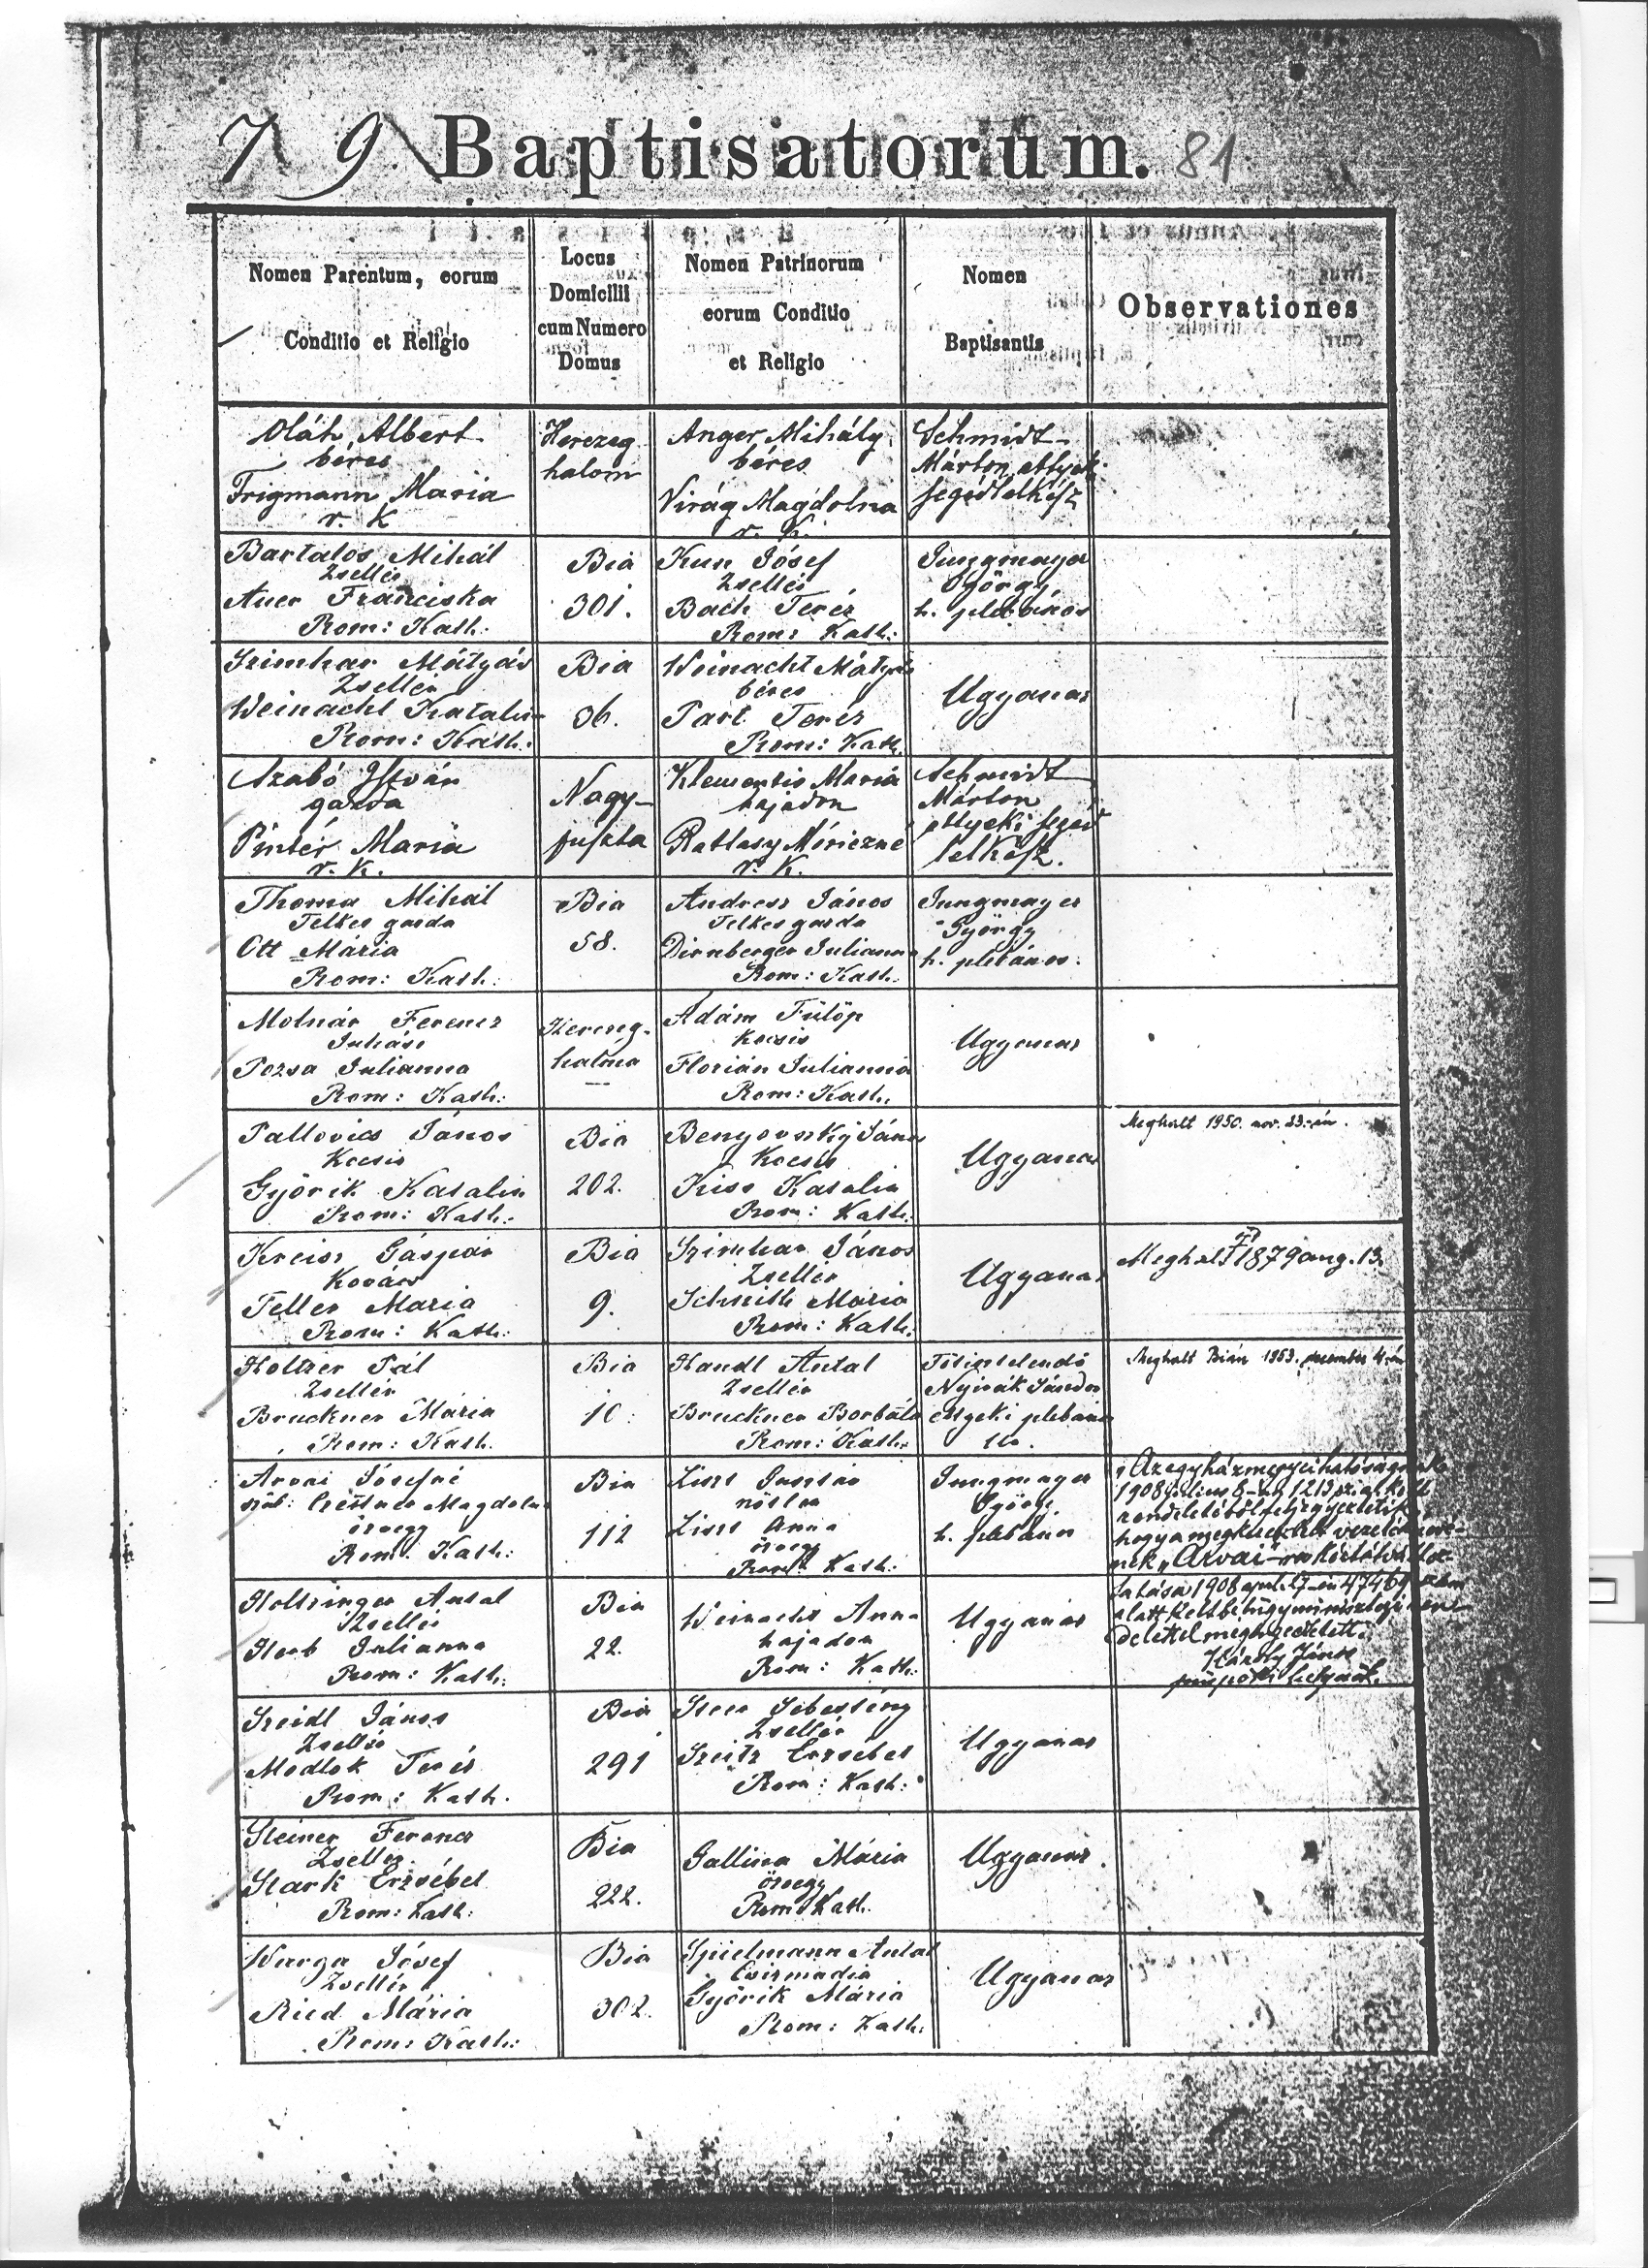 79 Baptisatorum. 81
Nomen Parentum, eorum
Conditio et Religio
Locus
Domicilii
cum Numero
Domus
Nomen Patrinorum
eorum Conditio
et Religio
Nomen
Baptisantis
Observationes
Oláh Albert
béres
Trigmann Maria
r. K
Herczeg
halom
Anger Mihály
béres
Virág Magdolna
r. K.
Schmidt
Márton etyeki
segédlelkész
Bartalos Mihál
Zsellér
Auer Franciska
Rom: Kath:
Bia
301.
Kun Jósef
Zsellér
Bach Teréz
Rom: Kath:
Jungmayer
György
h. plébános
Szimhar Mátyás
Zsellér
Weinacht Katalin
Rom: Kath:
Bia
36.
Weinacht Mátyás
béres
Part Teréz
Rom: Kath.
Ugyanaz
Szabó István
gazda
Pintér Maria
r. K.
Nagy-
puszta
Klementis Maria
hajadon
Ratlasy Móriczné
r. K.
Schmidt
Márton
etyeki segéd
lelkész.
Thoma Mihál
Telkes gazda
Ott Mária
Rom: Kath:
Bia
58.
Andresz János
Telkes gazda
Dirnberger Julianna
Rom: Kath:
Jungmayer
György
h. plébános.
Molnár Ferencz
Juhász
Pozsa Julianna
Rom: Kath:
Herczeg-
halma
Ádám Fülöp
Kocsis
Florián Julianna
Rom: Kath.
Ugyanaz
Pallovics János
Kocsis
Györik Katalin
Rom: Kath:
Bia
202.
Benyovszky János
Kocsis
Kiss Katalin
Rom: Kath:
Ugyanaz
Meghalt 1950. nov. 23.-án.
Kreisz Gáspár
Kovács
Teller Maria
Rom: Kath:
Bia
9.
Szimhar János
Zsellér
Schmith Mária
Rom: Kath:
Ugyanaz
Meghalt 1879 aug. 13.
Holtzer Pál
Zsellér
Bruckner Mária
Rom: Kath.
Bia
10.
Handl Antal
Zsellér
Bruckner Borbála
Rom: Kath.
Főtisztelendő
Nyirák Sándor
etyeki plébános
Meghalt Bián 1953. december 4-én
Arvai Jósefné
szül: Magdolna
özvegy
Rom. Kath:
Bia
112
Liszt Gusztáv
nőtlen
Liszt Anna
özvegy
Rom: Kath:
Jungmayer
György
h. plébános
Az egyházmegyei hatóságnak
1908 július 8-án 1213 sz. a. kelt
rendeletéből feljegyeztetik,
hogy a megkeresztelt vezetéknevé-
nek "Arvai"-ra
1908 april. 17-én 47469 szám
alatt kelt belügyminiszteri ren-
delettel megengedtetett.
Károly János
püspöki helynök.
Holtzinger Antal
Zsellér
Herb Julianna
Rom: Kath:
Bia
22.
Weinacht Anna
hajadon
Rom: Kath:
Ugyanaz
Szeidl János
Zsellér
Modlok Teréz
Rom: Kath.
Bia
291
Steer Sebestény
Zsellér
Szeitz Erzsébet
Rom: Kath:
Ugyanaz
Steiner Ferencz
Zsellér
Stark Erzsébet
Rom: Kath:
Bia
222.
Gallina Mária
özvegy
Rom: Kath.
Ugyanaz.
Warga Jósef
Zsellér
Ried Mária
Rom: Kath:
Bia
302.
Spielmann Antal
Csizmadia
Györik Mária
Rom: Kath:
Ugyanaz